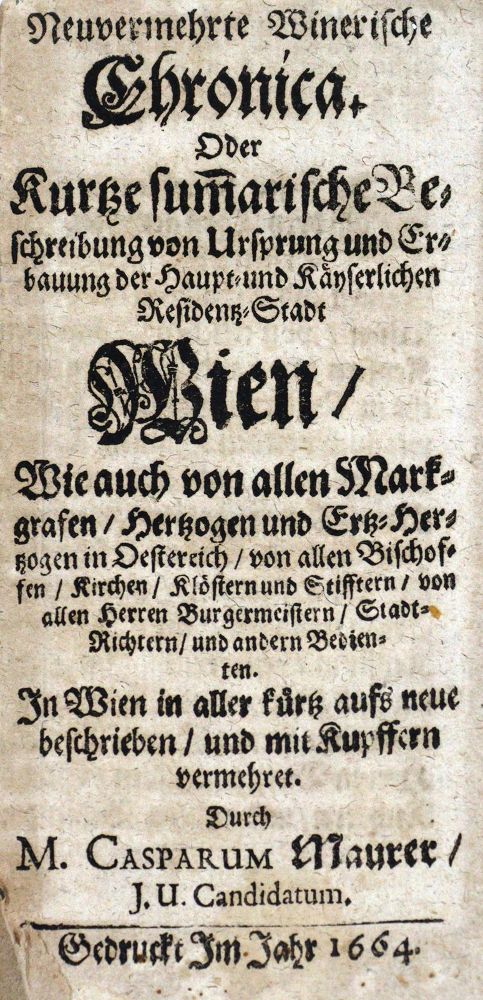 Neuvermehrte Winerische
Chronica.
Oder
Kurtze sum̃arische Be-
schreibung von Ursprung und Er-
bauung der Haupt-und Käyserlichen
Residentz-Stadt
Wien /
Wie auch von allen Mark-
grafen / Hertzogen und Ertz-Her-
tzogen in Oestereich / von allen Bischof-
fen / Kirchen / Klöstern und Stifftern / von
allen Herren Burgermeistern / Stadt-
Richtern / und andern Bedien-
ten.
In Wien in aller kürtz aufs neue
beschrieben / und mit Kupffern
vermehret.
Durch
M. CASPARUM Maurer /
J. U. Candidatum.
Gedruckt Im Jahr 1664.